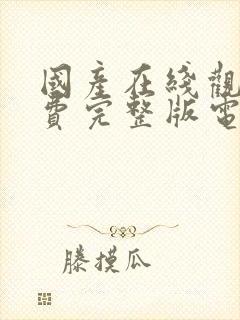 國產在綫觀
費完整版電
滕摸瓜